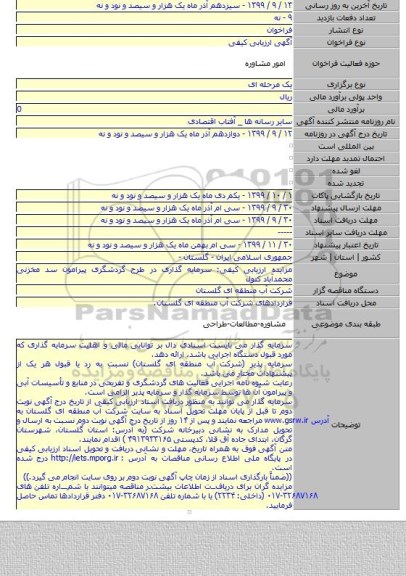 تاریخ آخرین به روز رسانی ۱۳ / ۹ / ۱۳۹۹ - سیزدهم آذر ماه یک هزار و سیصد و نود و نه
تعداد دفعات بازدید ۹ - نه
نوع انتشار فراخوان
نوع فراخوان آگهی ارزیابی کیفی
حوزه فعالیت فراخوان امور مشاوره
نوع برگزاری یک مرحله ای
واحد پولی برآورد مالی ریال
برآورد مالی 0
نام روزنامه منتشر کننده آگهی سایر رسانه ها _ آفتاب اقتصادی
تاریخ درج آگهی در روزنامه ۱۲ / ۹ / ۱۳۹۹ - دوازدهم آذر ماه یک هزار و سیصد و نود و نه
بین المللی است
احتمال تمدید مهلت دارد
لغو شده
تجدید شده
تاریخ بازگشایی پاکات ۱ / ۱۰ / ۱۳۹۹ - یکم دی ماه یک هزار و سیصد و نود و نه
مهلت ارسال پیشنهاد ۳۰ / ۹ / ۱۳۹۹ - سی ام آذر ماه یک هزار و سیصد و نود و نه
مهلت دریافت اسناد ۳۰ / ۹ / ۱۳۹۹ - سی ام آذر ماه یک هزار و سیصد و نود و نه
مهلت دریافت سایر اسناد -----
تاریخ اعتبار پیشنهاد ۳۰ / ۱۱ / ۱۳۹۹ - سی ام بهمن ماه یک هزار و سیصد و نود و نه
کشور | استان | شهر جمهوری اسلامی ایران - گلستان -
موضوع مزایده ارزیابی کیفی: سرمایه گذاری در طرح گردشگری پیرامون سد مخزنی
محمدآباد کتول
دستگاه مناقصه گزار شرکت آب منطقه ای گلستان
محل دریافت اسناد قراردادهای شرکت آب منطقه ای گلستان.
طبقه بندی موضوعی مشاوره-مطالعات-طراحی
توضیحات
سرمایه گذار می بایست اسنادی دال بر توانایی مالی و اهلیت سرمایه گذاری که
مورد قبول دستگاه اجرایی باشد، ارائه دهد.
سرمایه پذیر (شرکت آب منطقه ای گلستان) نسبت به رد یا قبول هر یک از
پیشنهادات مختار می باشد.
رعایت شیوه نامه اجرایی فعالیت های گردشگری و تفریحی در منابع و تأسیسات آبی
و پیرامون آن ها توسط سرمایه گذار و سرمایه پذیر الزامی است.
سرمایه گذار می توانند به منظور دریافت اسناد ارزیابی کیفی از تاریخ درج آگهی نوبت
دوم تا قبل از پایان مهلت تحویل اسناد به سایت شرکت آب منطقه ای گلستان به
آدرس www.gsrw.ir مراجعه نمایند و پس از ۱۴ روز از تاریخ درج آگهی نوبت دوم نسبت به ارسال و
تحویل مدارک به نشانی دبیرخانه شرکت (به آدرس: استان گلستان، شهرستان
گرگان، ابتدای جاده آق قلا، کدپستی ۴۹۱۳۹۳۳۱۶۵ ) اقدام نمایند.
متن آگهی فوق به همراه تاریخ، مهلت و نشانی دریافت و تحویل اسناد ارزیابی کیفی
در پایگاه ملی اطلاع رسانی مناقصات به آدرس : http://iets.mporg.ir درج شده
است.
((ضمناً بارگذاری اسناد از زمان چاپ آگهی نوبت دوم بر روی سایت انجام می گیرد.))
مزایده گران برای دریافت اطلاعات بیشتر مناقصه میتوانند با شماره تلفن های
۰۱۷-۳۲۶۸۷۱۶۸ (داخلی: ۲۲۳۴) یا با شماره تلفن ۳۲۶۸۷۱۶۸-۰۱۷ دفتر قراردادها تماس حاصل
فرمایید.